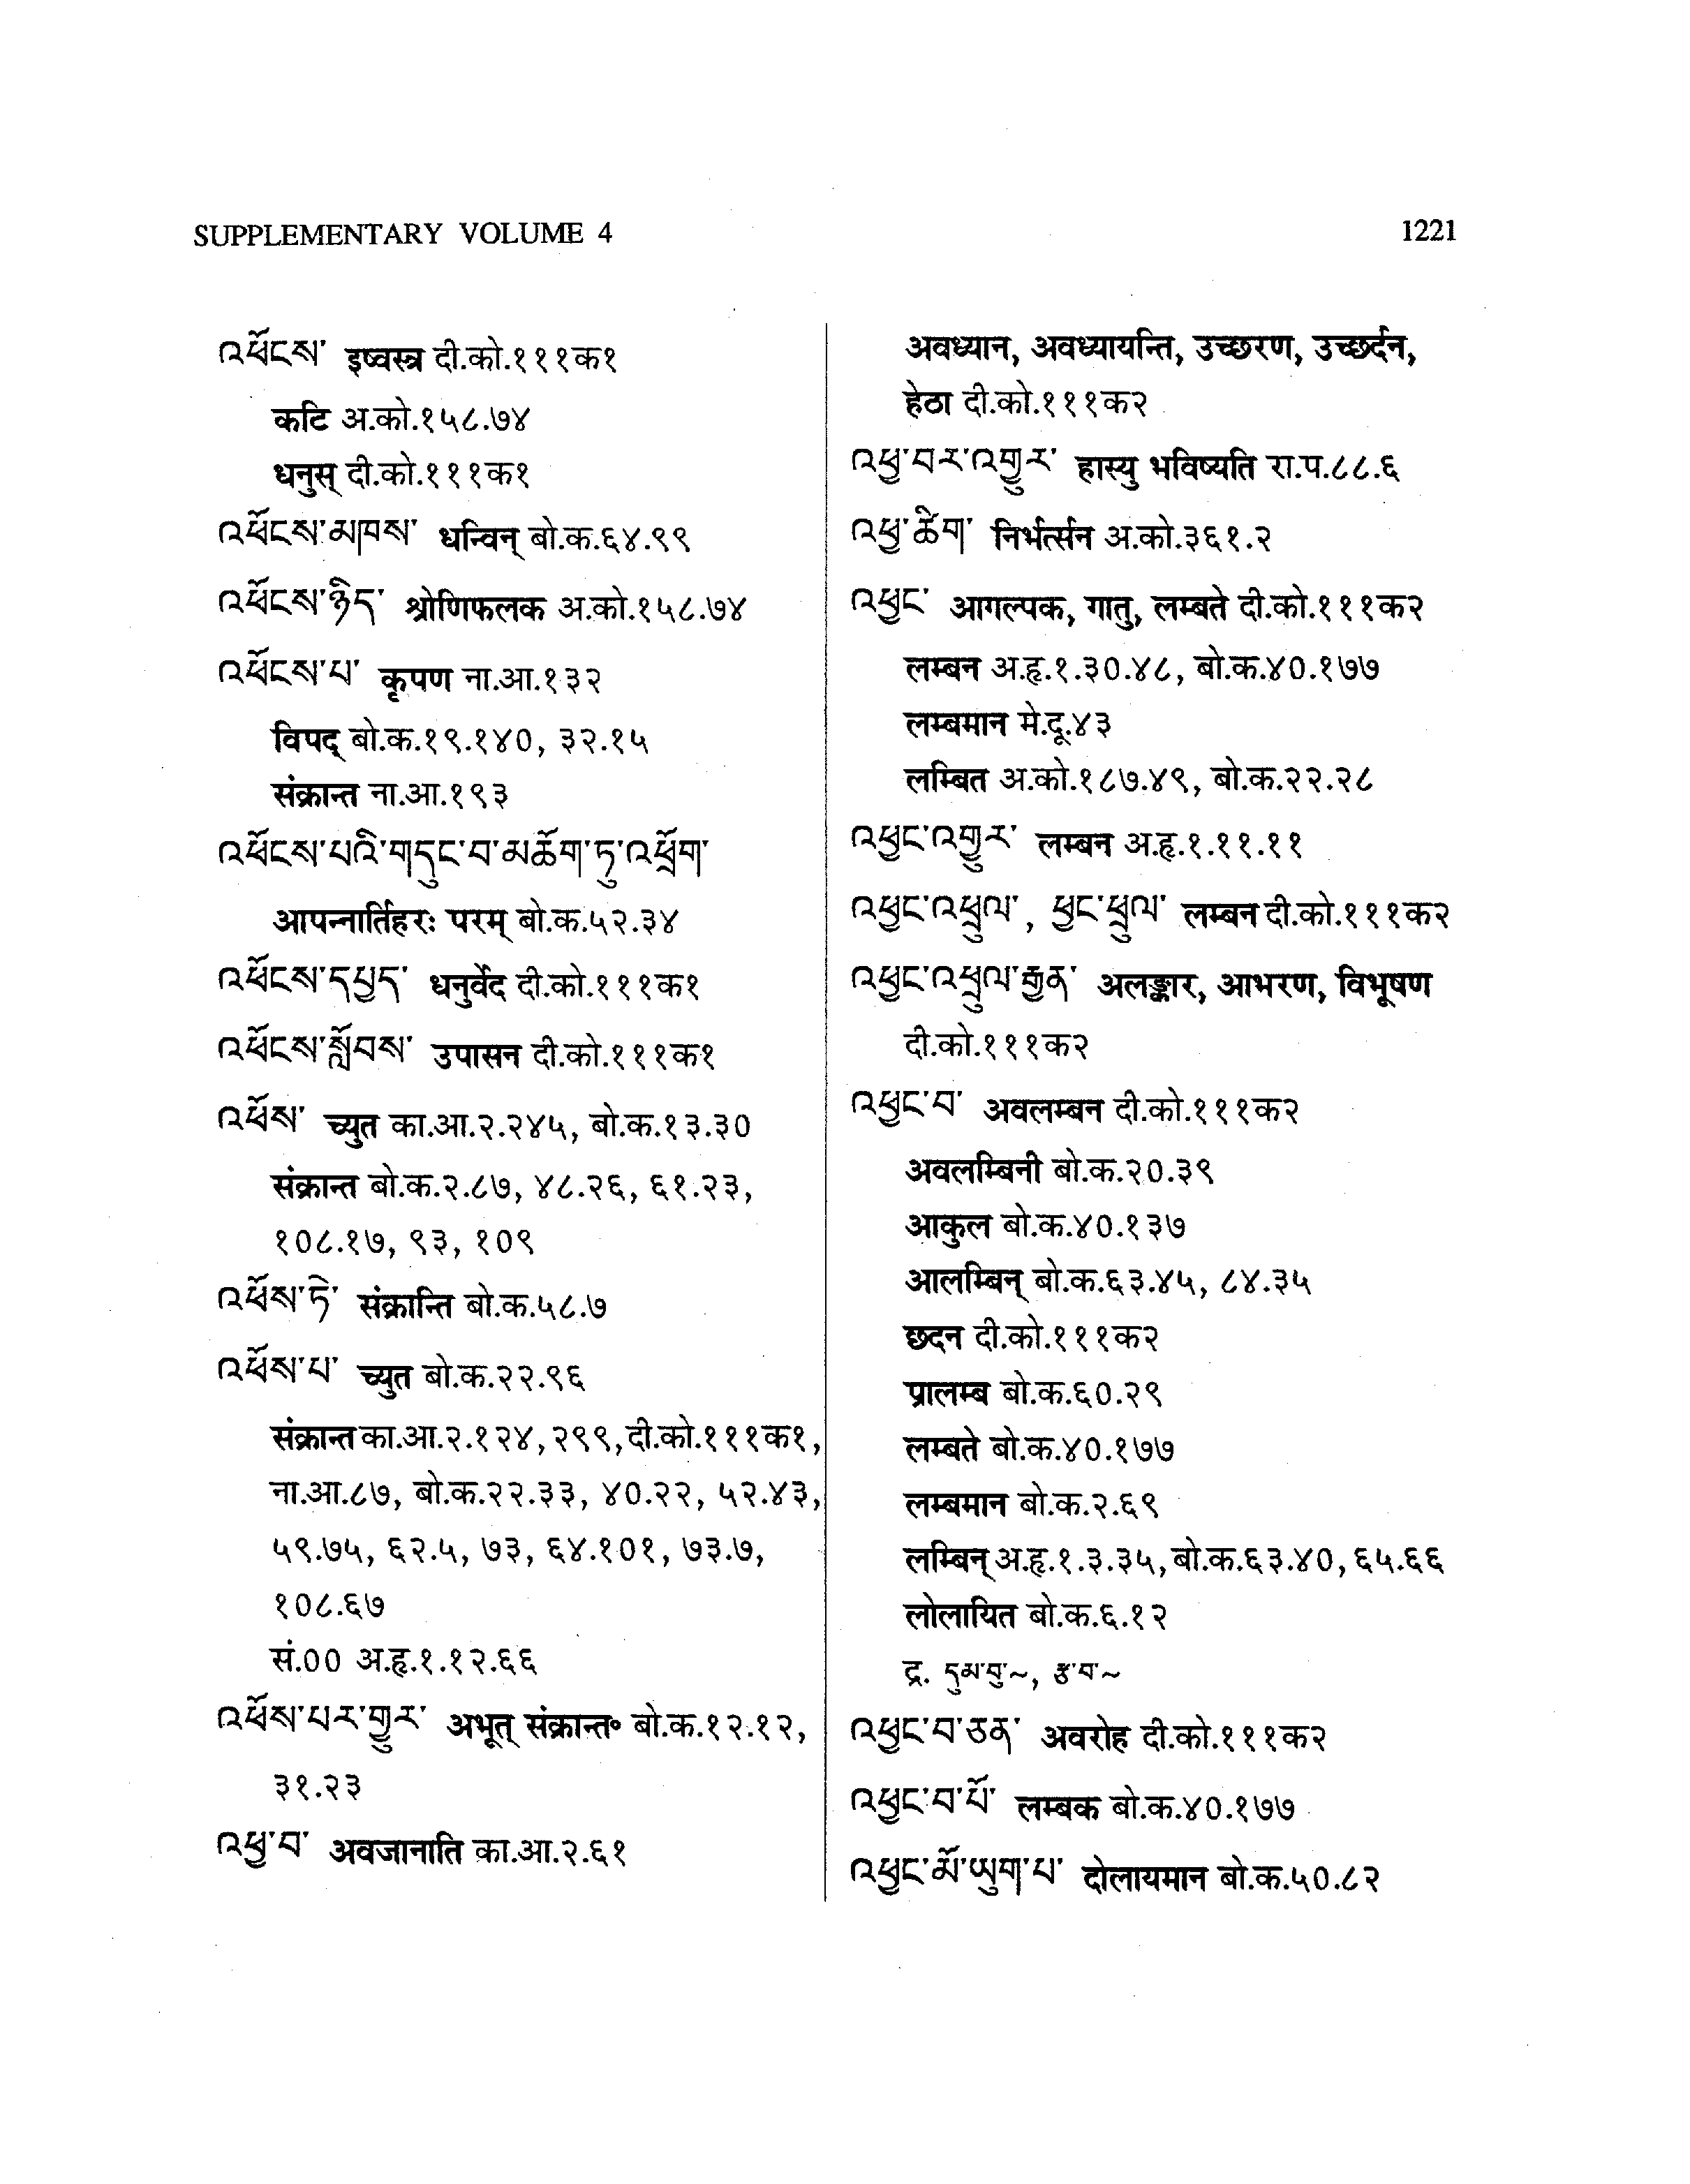 SUPPLEMENTARY VOLUME 4
1221
འཕོངས་ इष्वस्त्र दी.को.१११क१
कटि अ.को.१५८.७४
धनुस् दी.को.१११क१
འཕོངས་མཁས་ धन्विन् बो.क.६४.९९
འཕོངས་ཉིད་ श्रोणिफलक अ.को.१५८.७४
འཕོངས་པ་ कृपण ना.आ.१३२
विपद् बो.क.१९.१४०, ३२.१५
संक्रान्त ना.आ.१९३
འཕོངས་པའི་གདུང་བ་མཆོག་ཏུ་འཕྲོག་
आपन्नार्तिहरः परम् बो.क.५२.३४
འཕོངས་དཔྱད་ धनुर्वेद दी.को.१११क१
འཕོངས་སློབས་ उपासन दी.को.१११क१
འཕོས་ च्युत का.आ.२.२४५, बो.क.१३.३०
संक्रान्त बो.क.२.८७, ४८.२६, ६१.२३,
१०८.१७, ९३, १०९
འཕོས་ཏེ་ संक्रान्ति बो.क.५८.७
འཕོས་པ་ च्युत बो.क.२२.९६
संक्रान्त का.आ.२.१२४, २९९, दी.को.१११क१,
ना.आ.८७, बो.क.२२.३३, ४०.२२, ५२.४३,
५९.७५, ६२.५, ७३, ६४.१०१, ७३.७,
१०८.६७
सं.०० अ.हृ.१.१२.६६
འཕོས་པར་གྱུར་ अभूत् संक्रान्त॰ बो.क.१२.१२,
३१.२३
འཕྱ་བ་ अवजानाति का.आ.२.६१
अवध्यान, अवध्यायन्ति, उच्छरण, उच्छर्दन,
हेठा दी.को.१११क२
འཕྱ་བར་འགྱུར་ हास्यु भविष्यति रा.प.८८.६
འཕྱ་ཚིག་ निर्भर्त्सन अ.को.३६१.२
འཕྱང་ आगल्पक, गातु, लम्बते दी.को.१११क२
लम्बन अ.हृ.१.३०.४८, बो.क.४०.१७७
लम्बमान मे.दू.४३
लम्बित अ.को.१८७.४९, बो.क.२२.२८
འཕྱང་འགྱུར་ लम्बन अ.हृ.१.११.११
འཕྱང་འཕྲུལ་, ཕྱང་ཕྲུལ་ लम्बन दी.को.१११क२
འཕྱང་འཕྲུལ་རྒྱན་ अलङ्कार, आभरण, विभूषण
दी.को.१११क२
འཕྱང་བ་ अवलम्बन दी.को.१११क२
अवलम्बिनी बो.क.२०.३९
आकुल बो.क.४०.१३७
आलम्बिन् बो.क.६३.४५, ८४.३५
छदन दी.को.१११क२
प्रालम्ब बो.क.६०.२९
लम्बते बो.क.४०.१७७
लम्बमान बो.क.२.६९
लम्बिन् अ.हृ.१.३.३५, बो.क.६३.४०, ६५.६६
लोलायित बो.क.६.१२
द्र. དུམ་བུ་~, རྩ་བ་~
འཕྱང་བ་ཅན་ अवरोह दी.को.१११क२
འཕྱང་བ་པོ་ लम्बक बो.क.४०.१७७
འཕྱང་མོ་ཡུག་པ་ दोलायमान बो.क.५०.८२